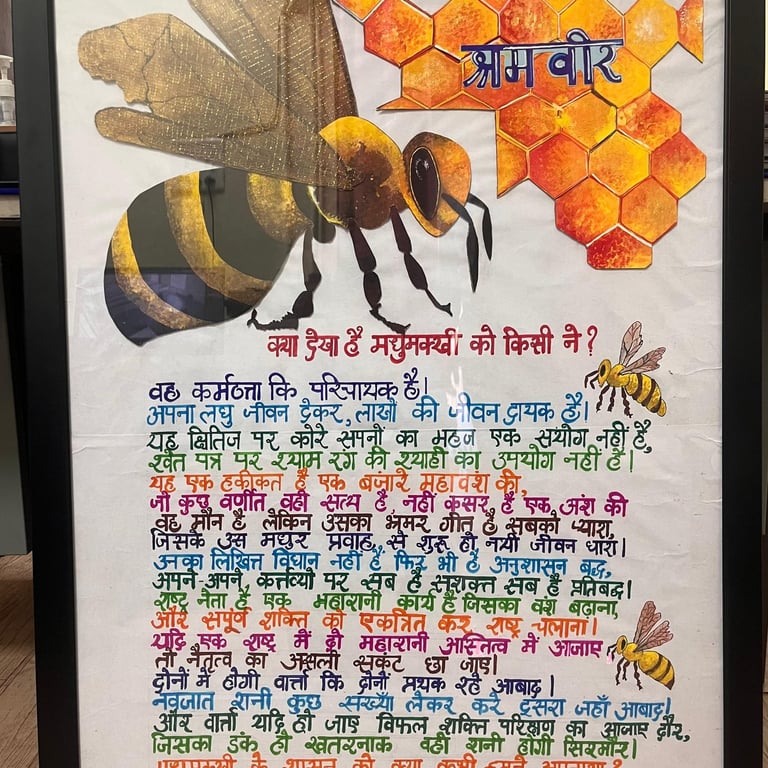 श्रम वीर
क्या देखा है मधुमक्खी को किसी ने ?
वह कर्मठता कि परिचायक है।
अपना लघु जीवन देकर, लाखों की जीवन दायक है।
यह क्षितिज पर कोरे सपनों का महज एक संयोग नहीं है,
श्वेत पत्र पर श्याम रंग की श्याही का उपयोग नहीं है।
यह एक हकीकत है एक बंजारे महावंश की,
जो कुछ वर्णीत वही सत्य है, नहीं कसर है एक अंश की
वह मौन है लेकिन उसका भ्रमर गीत है सबको प्यारा,
जिसके उस मधुर प्रवाह, से शुरू हो नयी जीवन धारा।
उनका लिखित विधान नहीं है फिर भी है अनुशासन बद्ध,
अपने-अपने कर्त्तव्यो पर सब है सशक्त सब है प्रतिबद्ध।
राष्ट्र नेता है एक महारानी कार्य है जिसका वंश बढ़ाना,
और संपूर्ण शक्ति को एकत्रित कर राष्ट्र चलाना।
यदि एक राष्ट्र में दो महारानी अस्तित्व में आजाए
तो नैतृत्व का असली संकट छा जाए।
दोनों में होगी वार्ता कि दोनों प्रथक रहे आबाद।
नवजात रानी कुछ संख्या लेकर करे दूसरा जहाँ आबाद।
और वार्ता यदि हो जाए विफल शक्ति परिक्षण का आजाए दौर,
जिसका डंक हो खतरनाक वही रानी होगी सिरमौर।